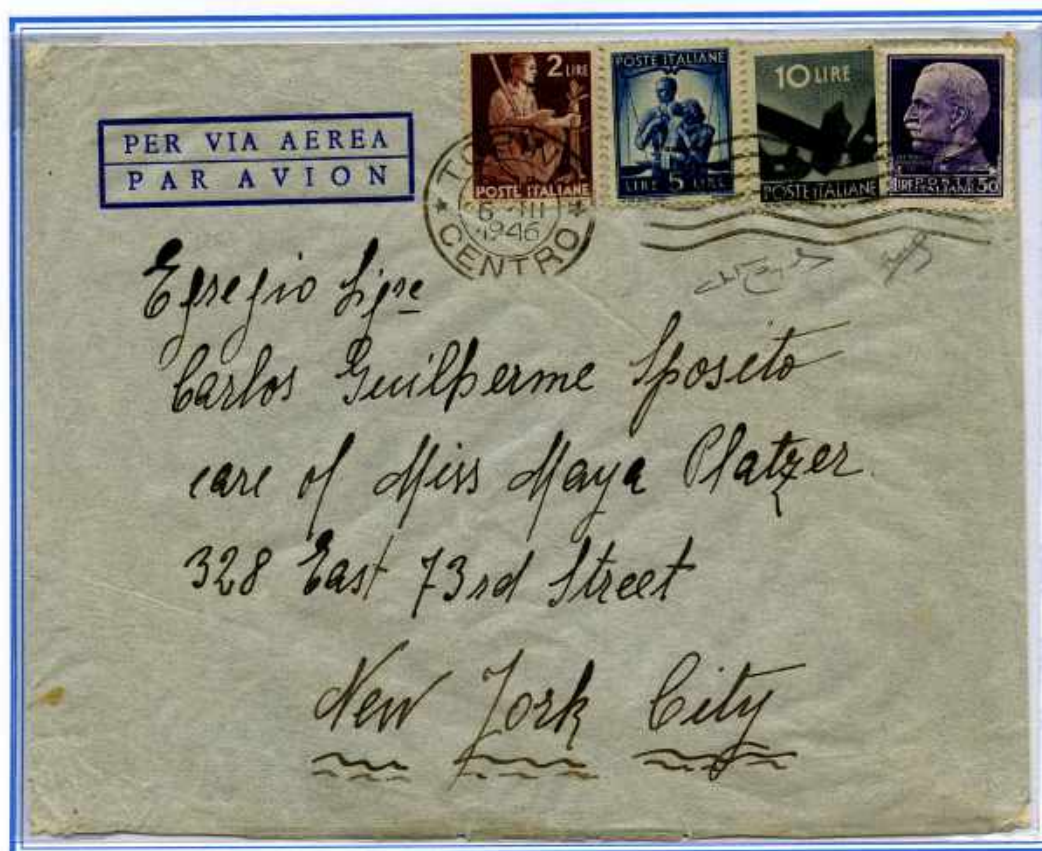 PER VIA AEREA
PAR AVION
2 LIRE
POSTE ITALIANE
POSTE ITALIANE
LIRE 5 LIRE
10 LIRE
POSTE ITALIANE
LIRE POSTE ITALIANE 50
TORINO
1946
CENTRO
Egregio Sigre
Carlos Guilherme Sposito
care of Miss Maya Platzer
328 East 73rd Street
New York City